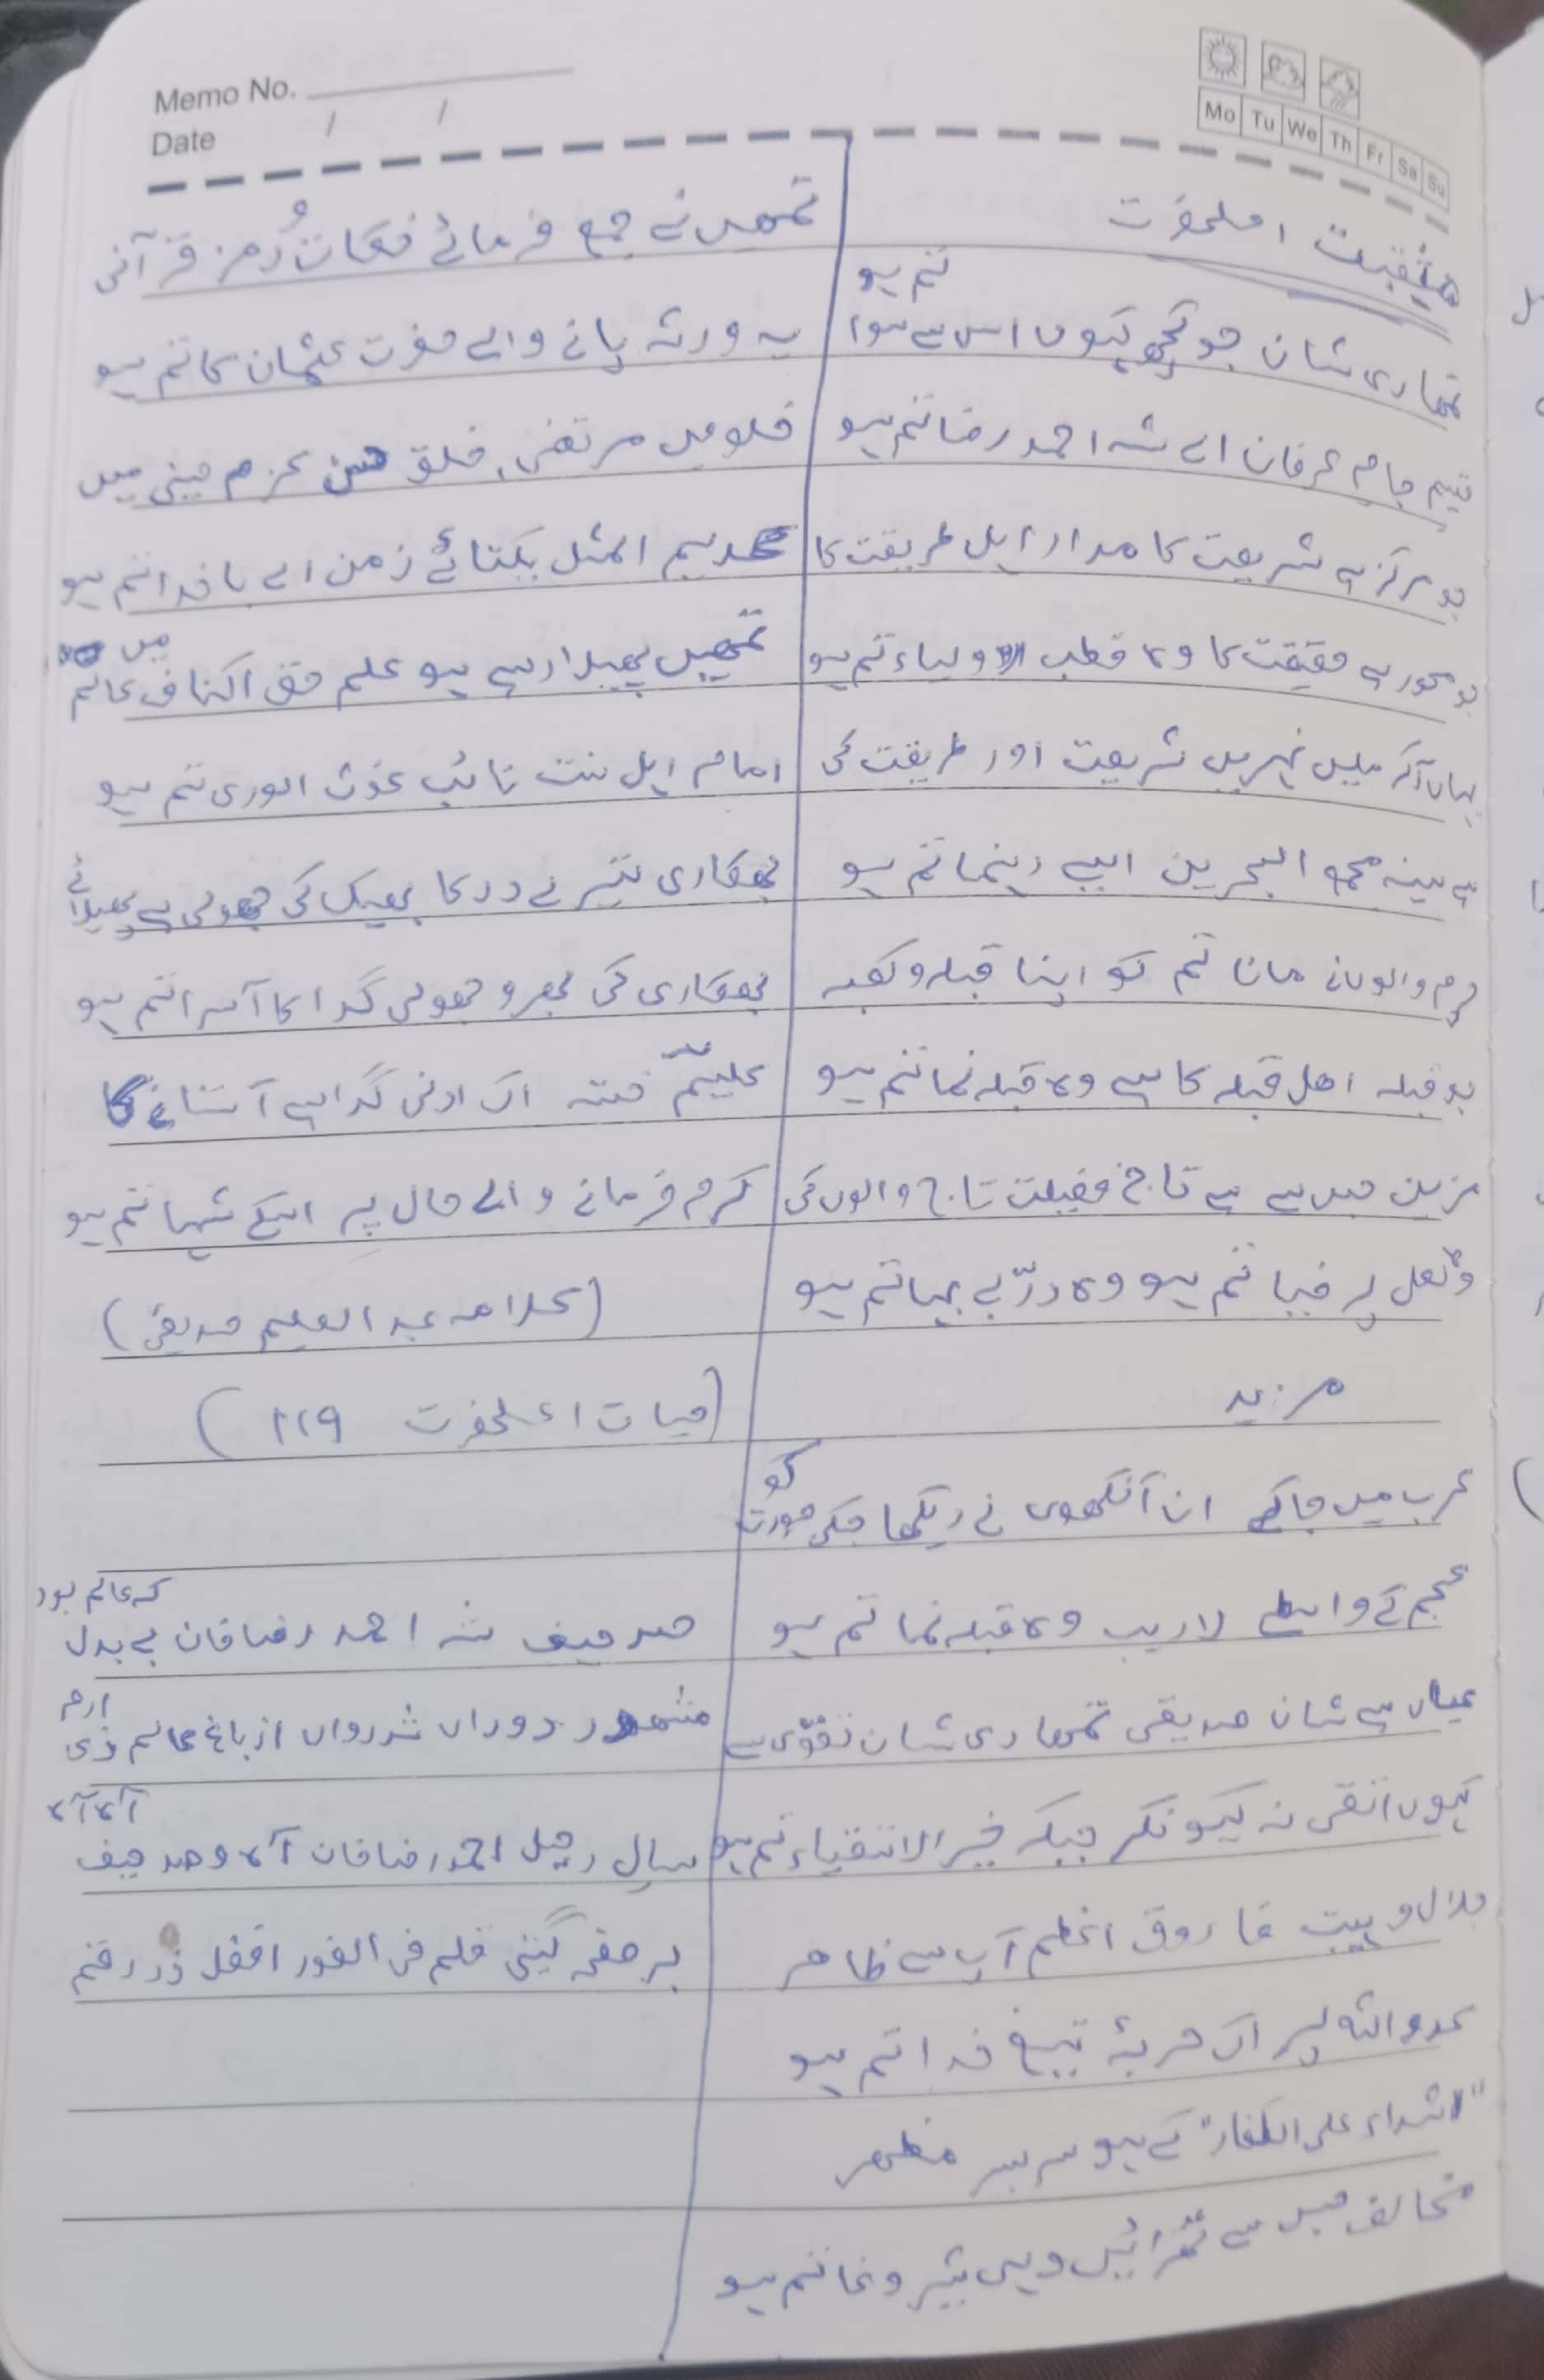 Memo No.
Date / /
Mo Tu We Th Fr Sa Su
منقبت اعلحضرت
تمھاری شان جو کچھ کہوں اس سے سوا تم ہو
قسیم جام عرفان اے شہ احمد رضا تم ہو
جو مرکز ہے شریعت کا مدار اہل طریقت کا
جو محور ہے حقیقت کا وہ قطب الاولیاء تم ہو
یہاں آکر ملیں نہریں شریعت اور طریقت کی
ہے سینہ مجمع البحرین ایسے رہنما تم ہو
حرم والوں نے مانا تم کو اپنا قبلہ و کعبہ
جو قبلہ اھل قبلہ کا ہے وہ قبلہ نما تم ہو
مزین جس سے ہے تاج فضیلت تاج والوں کی
وہ لعل پر ضیا تم ہو وہ درّ بے بہا تم ہو
مزید
عرب میں جاکے ان آنکھوں نے دیکھا جسکی صورت کو
عجم کے واسطے لاریب وہ قبلہ نما تم ہو
عیاں ہے شان صدیقی تمھاری شان تقوّی سے
کہوں اتقی نہ کیونکر جبکہ خیر الاتقیاء تم ہو
جلال و ہیبت فاروق اعظم آپ سے ظاھر
عدو اللہ پر اک حربۂ تیغ خدا تم ہو
"اشداء علی الکفار" کے ہو سر بسر مظھر
مخالف جس سے تھرائیں وہی شیر وغا تم ہو
تمھیں نے جمع فرمائے نکات رُمز قرآنی
یہ ورثہ پانے والے حضرت عثمان کا تم ہو
خلوص مرتضی، خلق حسن عزم حسینی میں
عدیم المثل یکتائے زمن اے باخدا تم ہو
تمھیں پھیلا رہے ہو علم حق اکناف عالم میں
امام اہل سنت نائب غوث الوری تم ہو
بھکاری تیرے در کا بھیک کی جھولی ہے پھیلائے
بھکاری کی بھرو جھولی گدا کا آسرا تم ہو
علیمؔ خستہ اک ادنی گدا ہے آستانے کا
کرم فرمانے والے حال پر اسکے شہا تم ہو
(علامہ عبد العلیم صدیقی)
(حیات اعلحضرت ۱۱۹)
صد حیف شہ احمد رضا خان بے بدل کہ عالم بود
مشھور دوراں شد رواں از باغ عالم ذی ارم
سال رحیل احمد رضا خان آہ و صد حیف آہ آہ
بر صفحہ گیتی قلم فی الفور افضل زد رقم